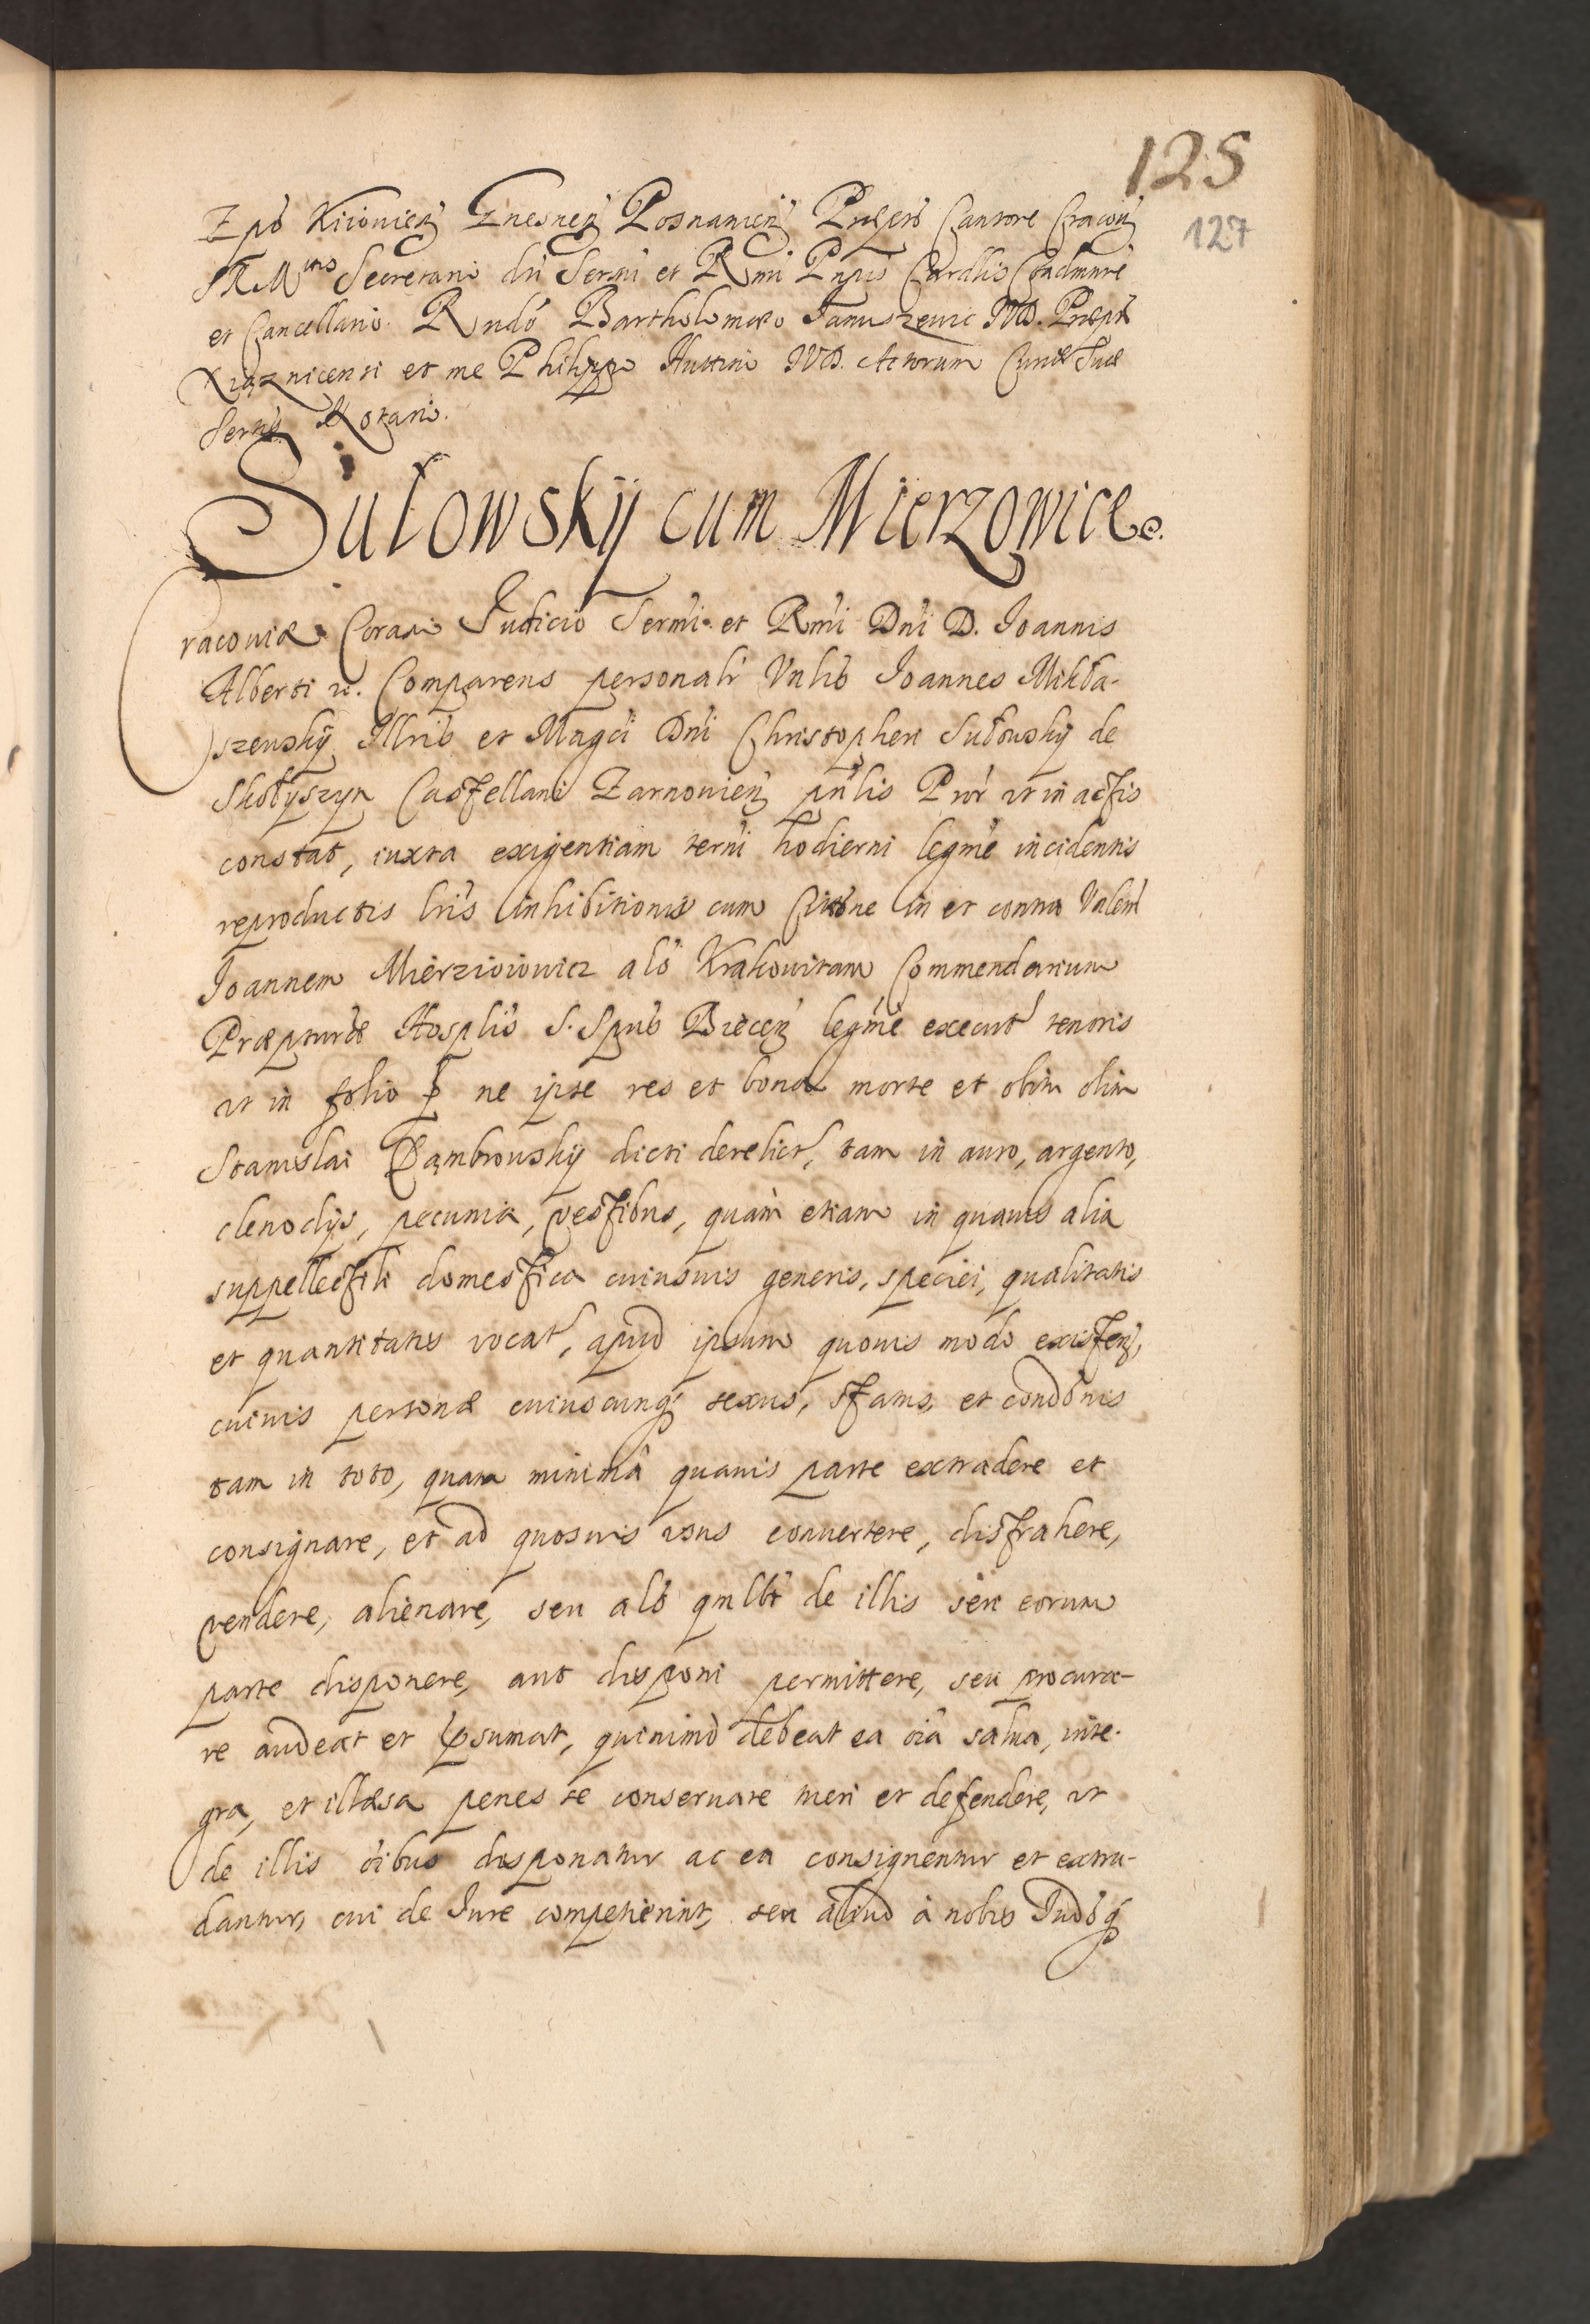 125
127
Epō Kiiovieñ Gnesneñ Posnanieñ Præptō Cantore Cracoñ
SRMttis Secretario dñi Sermi et Rmi Pñpis Cardlis Coadmnre
et Cancellario. Rndo Bartholomæo Januszevic IVD. Præpto
Xiąznicensi et me Philippo Huttini IVD. Actorum Curiæ Suæ
Sertis Notario.
Sułowskÿ cum Mierzowice.
racoviæ Coram Judicio Sermi et Rmi Dñi D. Joannis
Alberti rc. Comparens personalr Vnlis Joannes Mikła-
szewskÿ Illris et Magci Dñi Christopheri Sułowskÿ de
Skołyszyn Castellani Zarnovieñ pñlis Prōr ut in actis
constat, iuxta exigentiam termi hodierni legme incidentis
reproductis lris inhibitionis cum Citōne in et contra Vnlem
Joannem Mierziowicz als Krakowitam Commendarium
Præpturæ Hosplis S. Spūs Biecen legme execut tenoris
ut in folio p̄ ne ipse res et bona morte et obitu olim
Stanislai Dąmbrowskÿ dicti derelict, tam in auro, argento,
clenodijs, pecunia, vestibus, quàm etiam in quavis alia
suppellectili domestica cuiusvis generis, speciei, qualitatis
et quantitatis vocat, apud ipsum quovis modo existeñ,
cuivis personæ cuiuscunq sexus, status, et condōnis
tam in toto, quam minimâ quavis parte extradere et
consignare, et ad quosvis usus convertere, distrahere,
vendere, alienare, seu als qmlbt de illis seu eorum
parte disponere, aut disponi permittere, seu procura-
re audeat et præsumat, quinimò debeat ea oīa salva, inte-
gra, et illæsa penes se conservare tueri et defendere, ut
de illis oībus disponatur ac ea consignentur et extra-
dantur, cui de Iure competierint, seu aliud à nobis Judōq